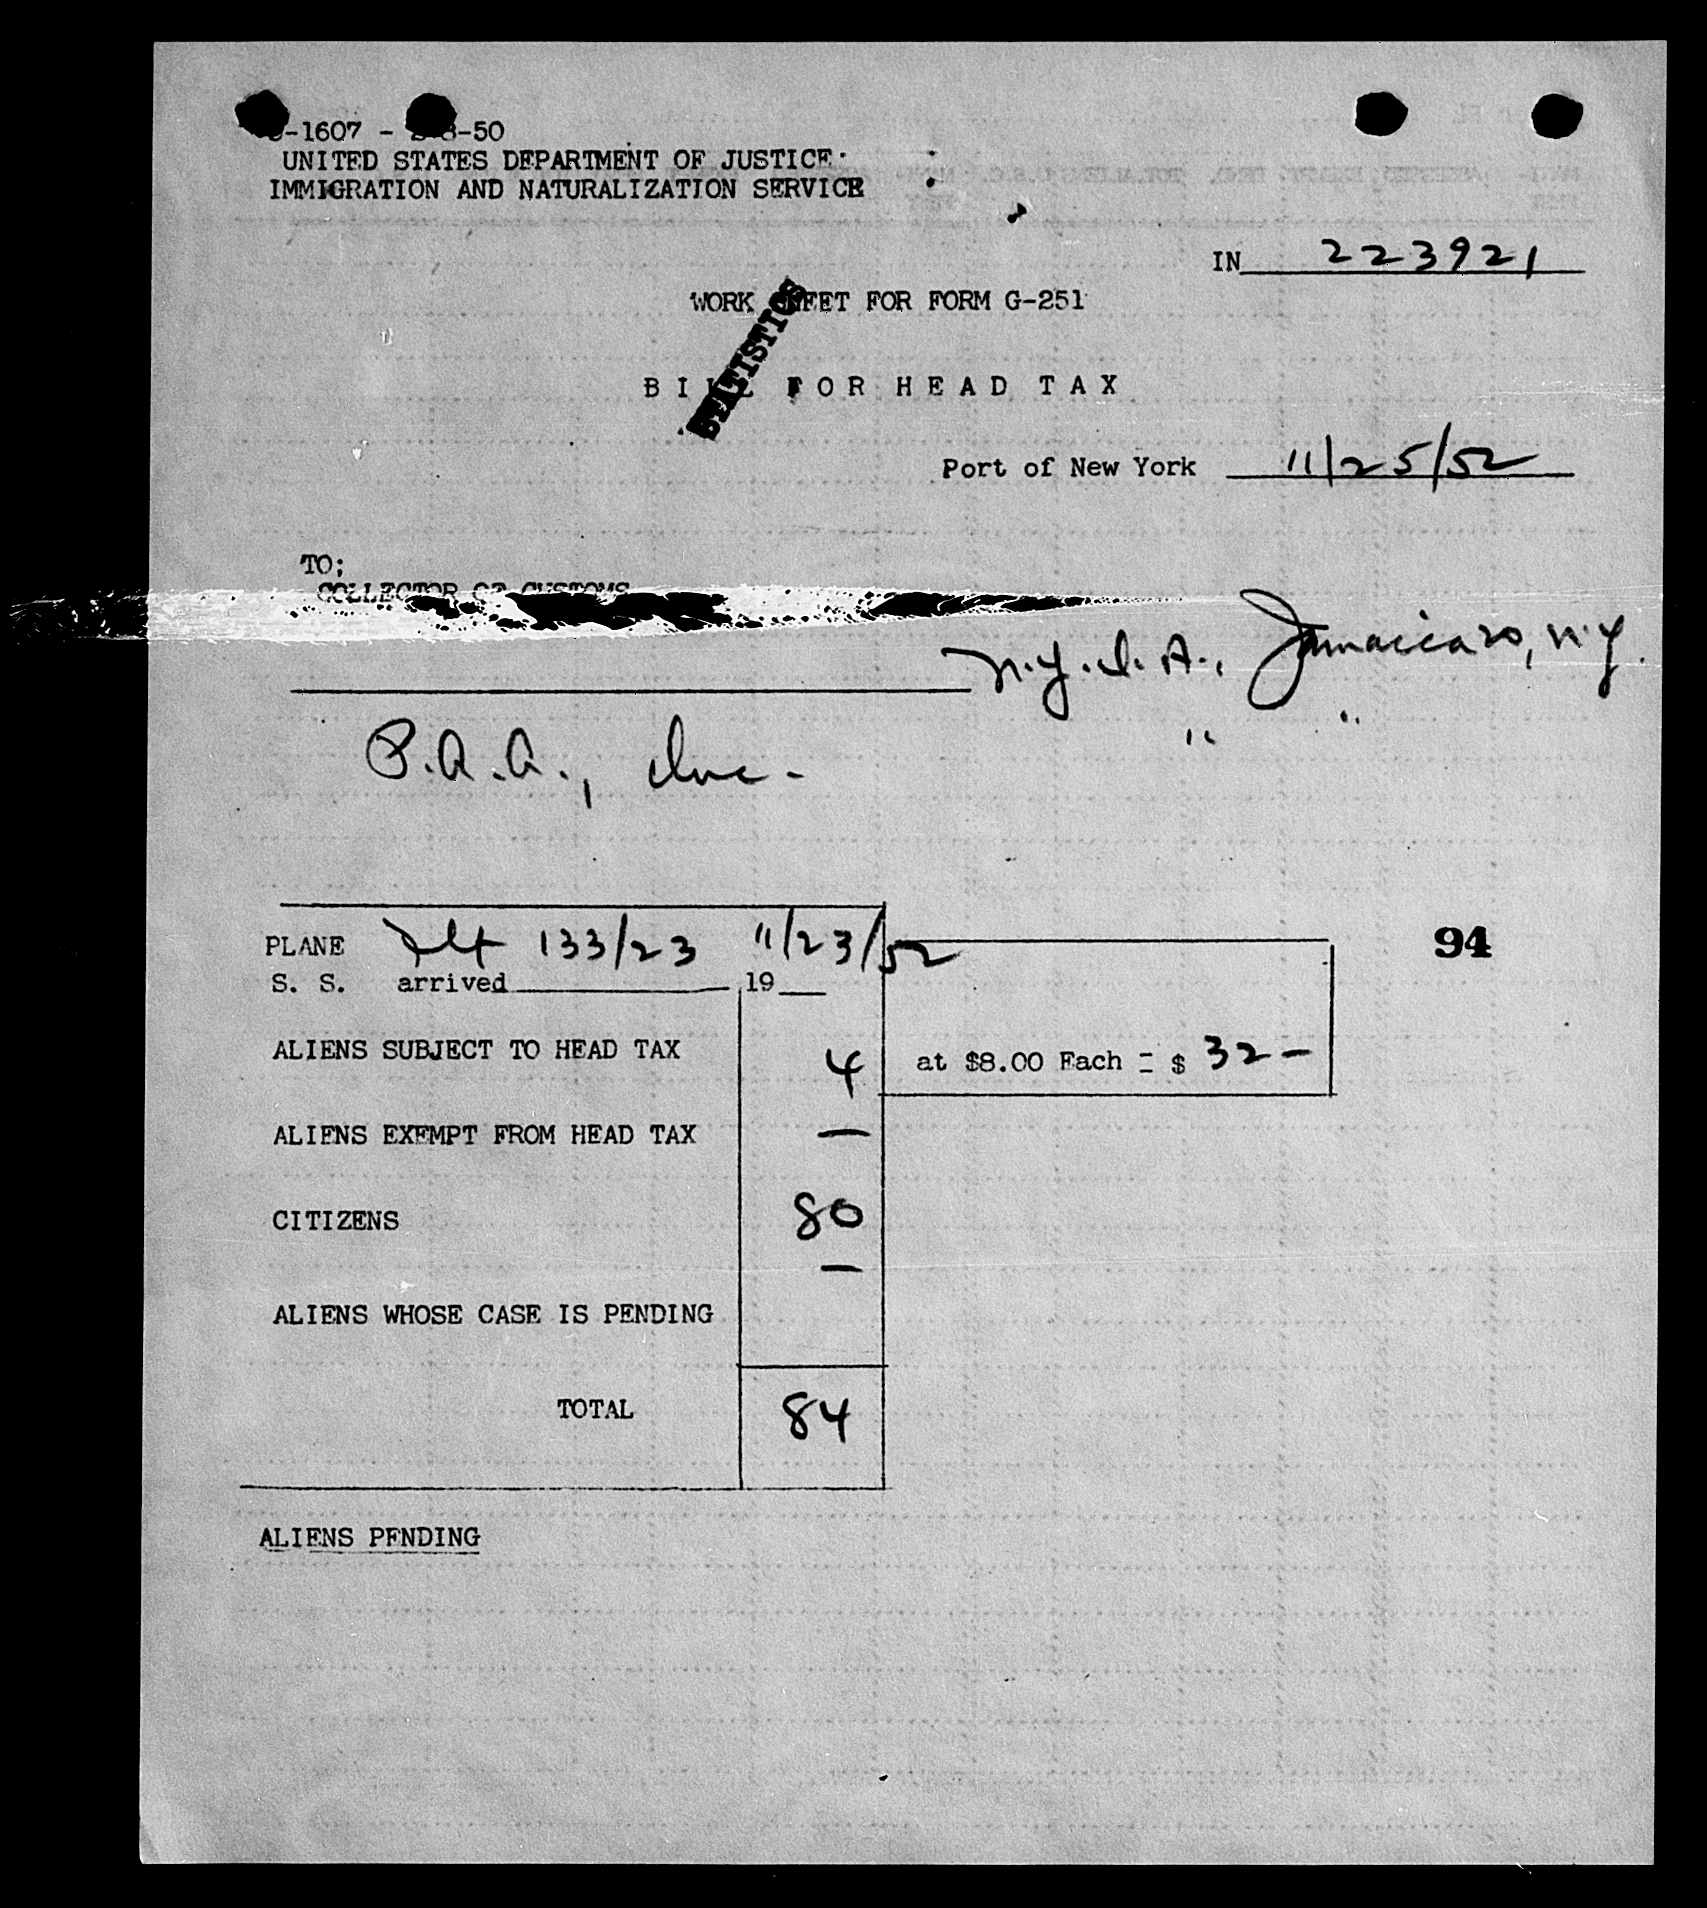 -1607 - -50
UNITED STATES DEPARTMENT OF JUSTICE
IMMIGRATION AND NATURALIZATION SERVICE
IN 223921
WORK SHEET FOR FORM G-251
STATISTICS
BILL FOR HEAD TAX
Port of New York 11/25/52
TO;
COLLECTOR OF CUSTOMS
N.Y.I.A., Jamaica 30, N.Y.
P.A.A., Inc. " "
PLANE Flt 133/23 11/23/52
S. S. arrived 19
94
ALIENS SUBJECT TO HEAD TAX 4 at $8.00 Each = $ 32 —
ALIENS EXEMPT FROM HEAD TAX —
CITIZENS 80
—
ALIENS WHOSE CASE IS PENDING
TOTAL 84
ALIENS PENDING